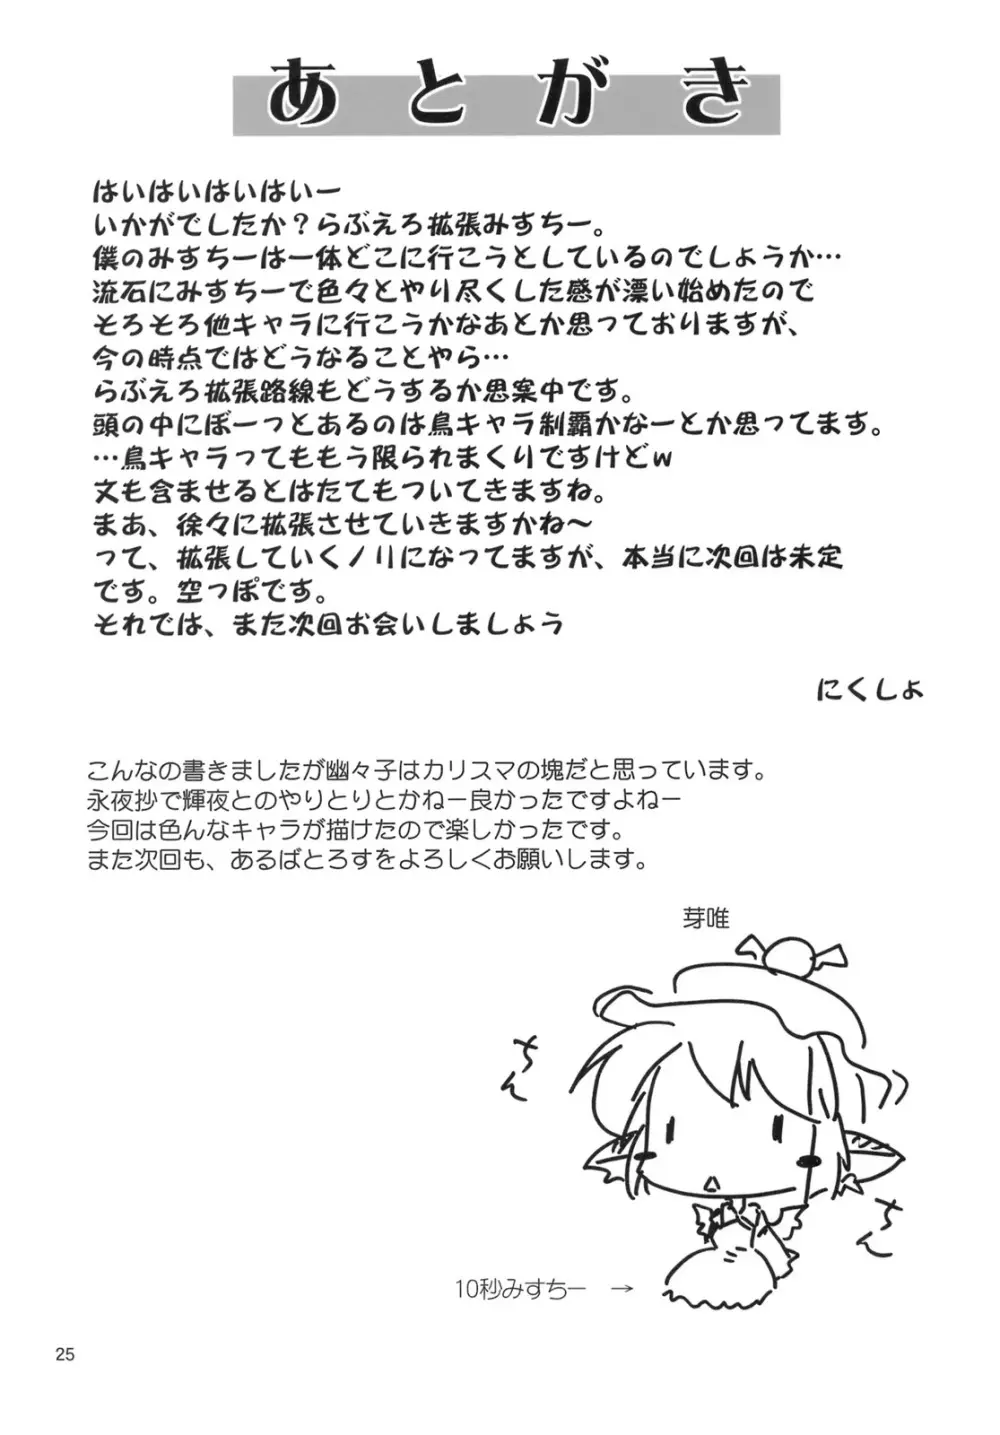 あとがき
はいはいはいはいー
いかがでしたか？らぶえろ拡張みすちー。
僕のみすちーは一体どこに行こうとしているのでしょうか…
流石にみすちーで色々とやり尽くした感が漂い始めたので
そろそろ他キャラに行こうかなあとか思っておりますが、
今の時点ではどうなることやら…
らぶえろ拡張路線もどうするか思案中です。
頭の中にぼーっとあるのは鳥キャラ制覇かなーとか思ってます。
…鳥キャラってももう限られまくりですけどｗ
文も含ませるとはたてもついてきますね。
まあ、徐々に拡張させていきますかね～
って、拡張していくノリになってますが、本当に次回は未定
です。空っぽです。
それでは、また次回お会いしましょう
にくしょ
こんなの書きましたが幽々子はカリスマの塊だと思っています。
永夜抄で輝夜とのやりとりとかねー良かったですよねー
今回は色んなキャラが描けたので楽しかったです。
また次回も、あるばとろすをよろしくお願いします。
芽唯
ちん
ちん
10秒みすちー　→
25